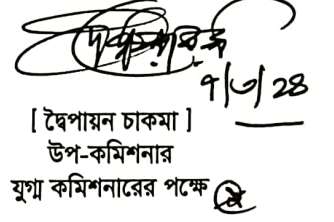 ৭/৩/২৪
[ দ্বৈপায়ন চাকমা ]
উপ-কমিশনার
যুগ্ম কমিশনারের পক্ষে